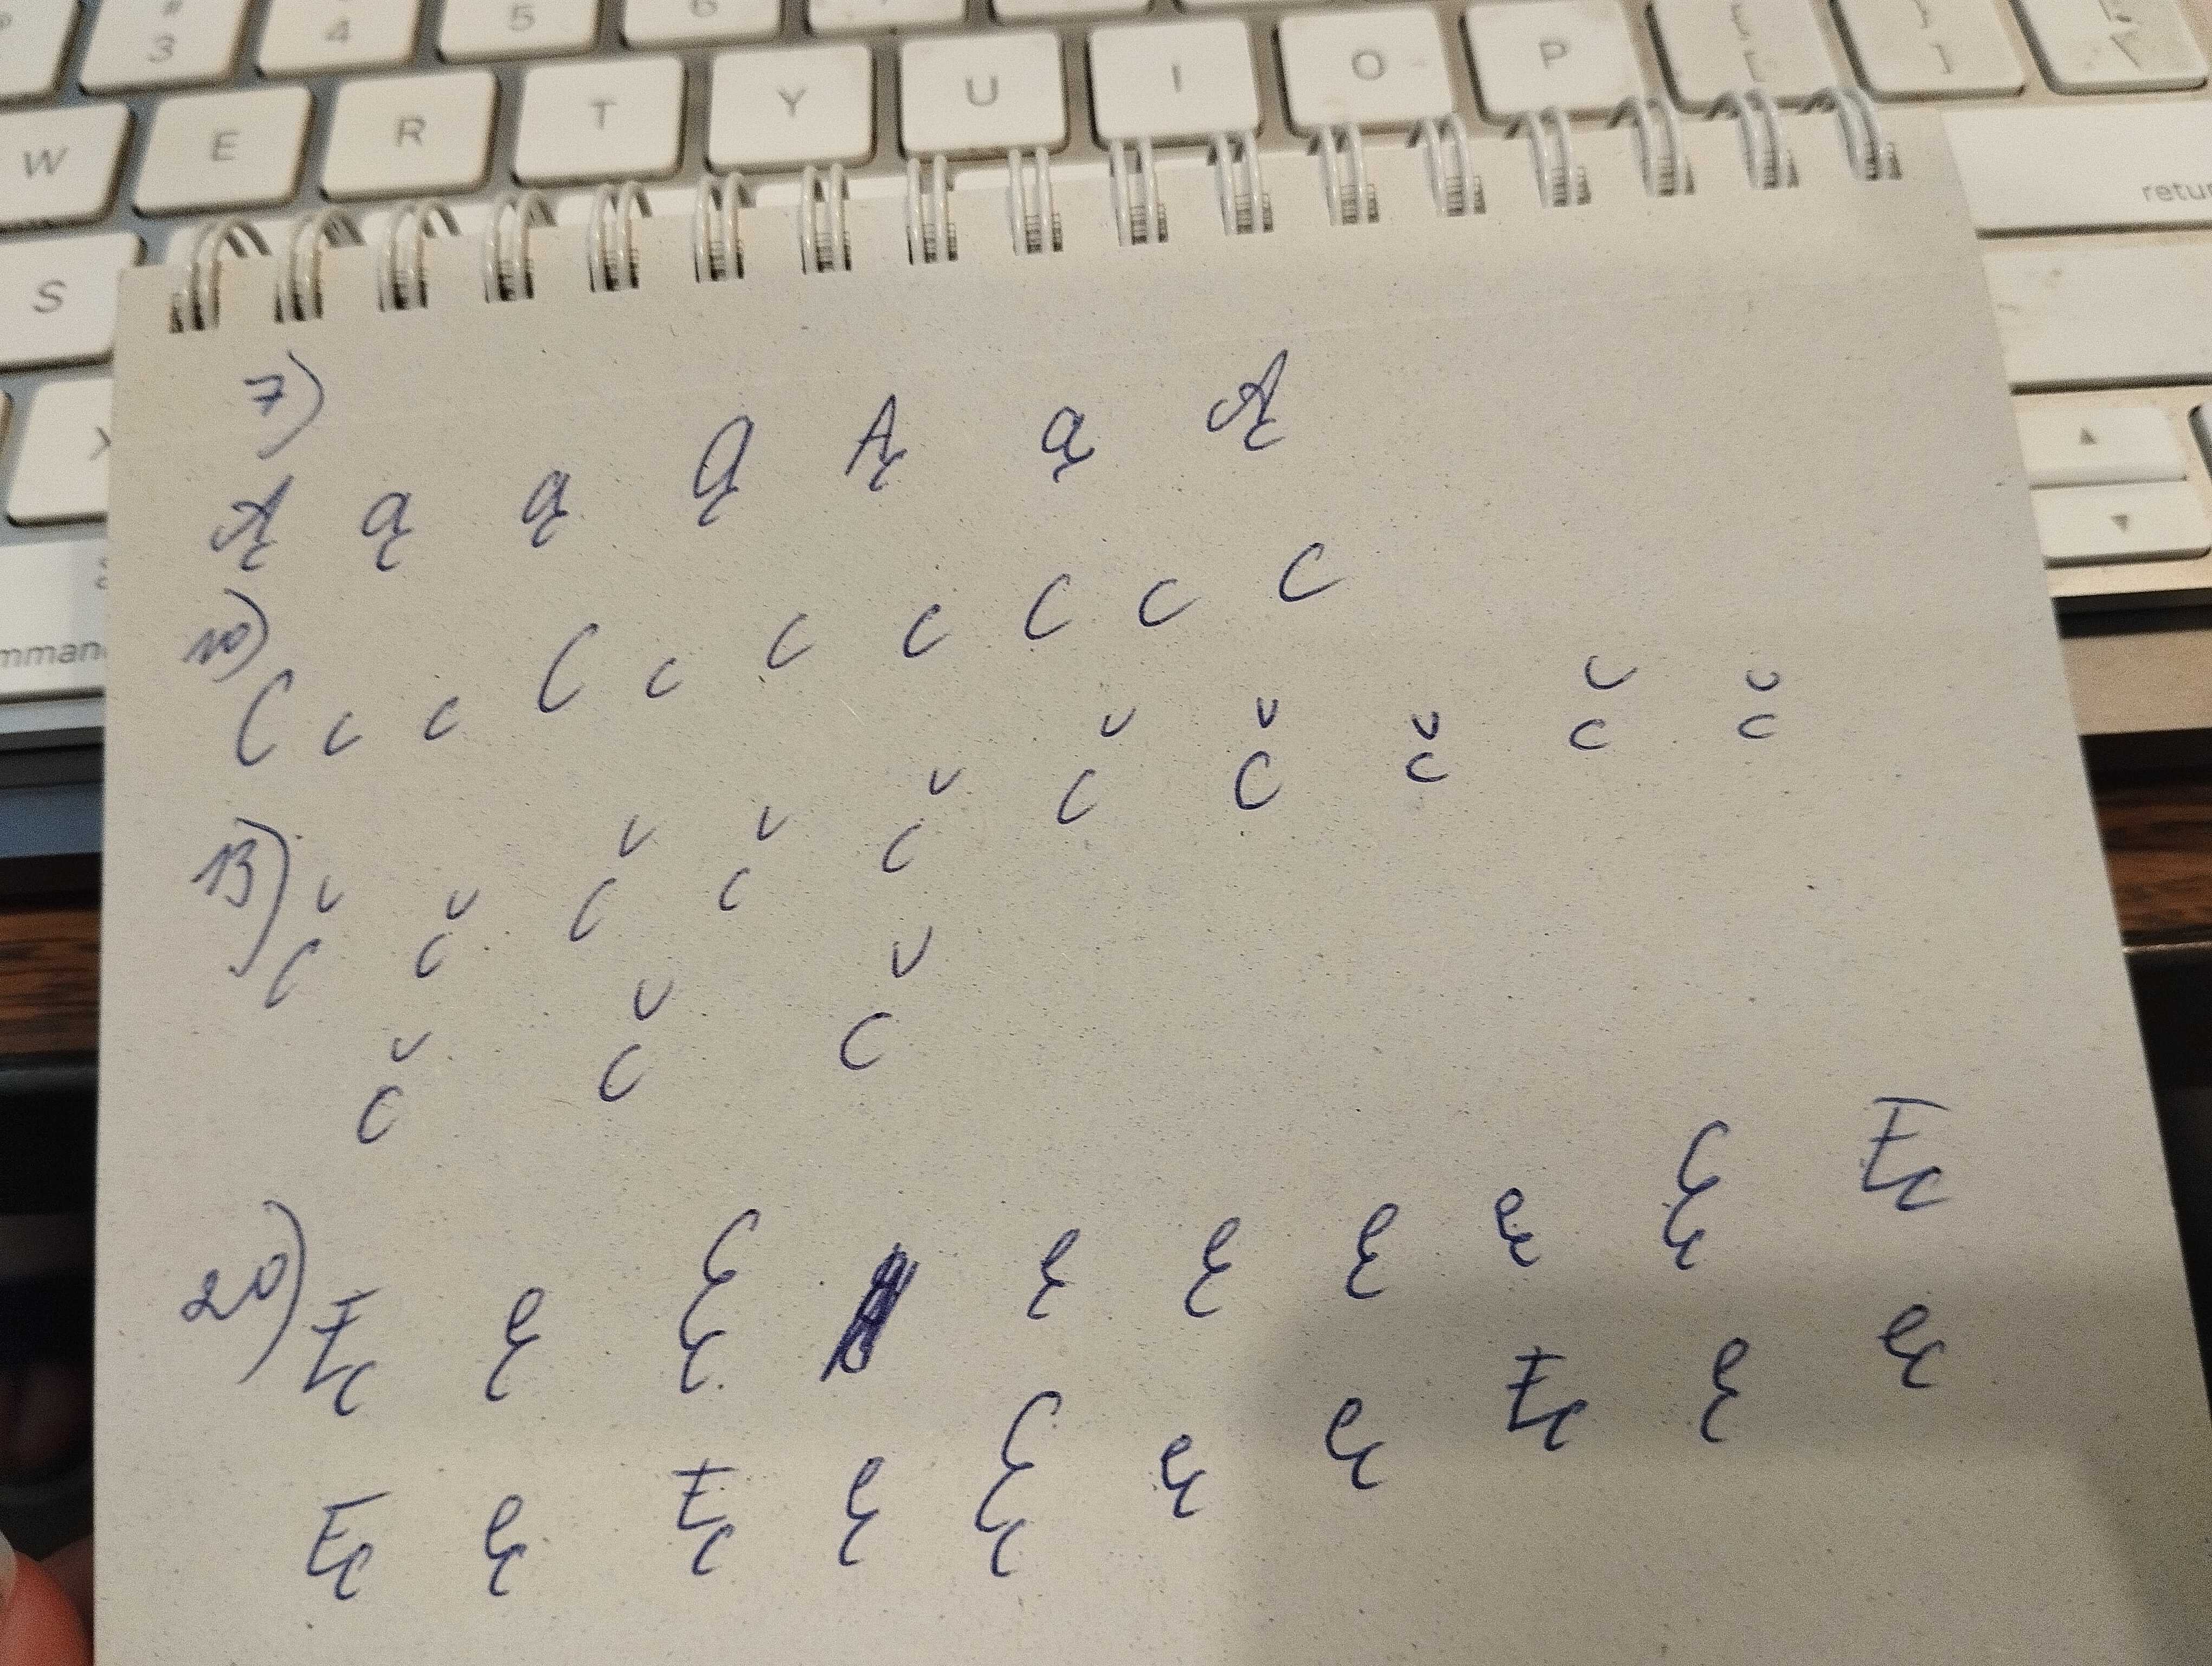 3 4 5 6
W E R T Y U I O P { [ } ] \
S return
X
command
7)
Ą ą ą Ą Ą ą Ą
10)
C c c C c c c C c C
13)
Č č Č č č Č Č č č č
Č Č Č
20)
Ę ę Ę ę ę ę ę Ę Ę
Ę ę Ę ę Ę ę ę Ę ę ę